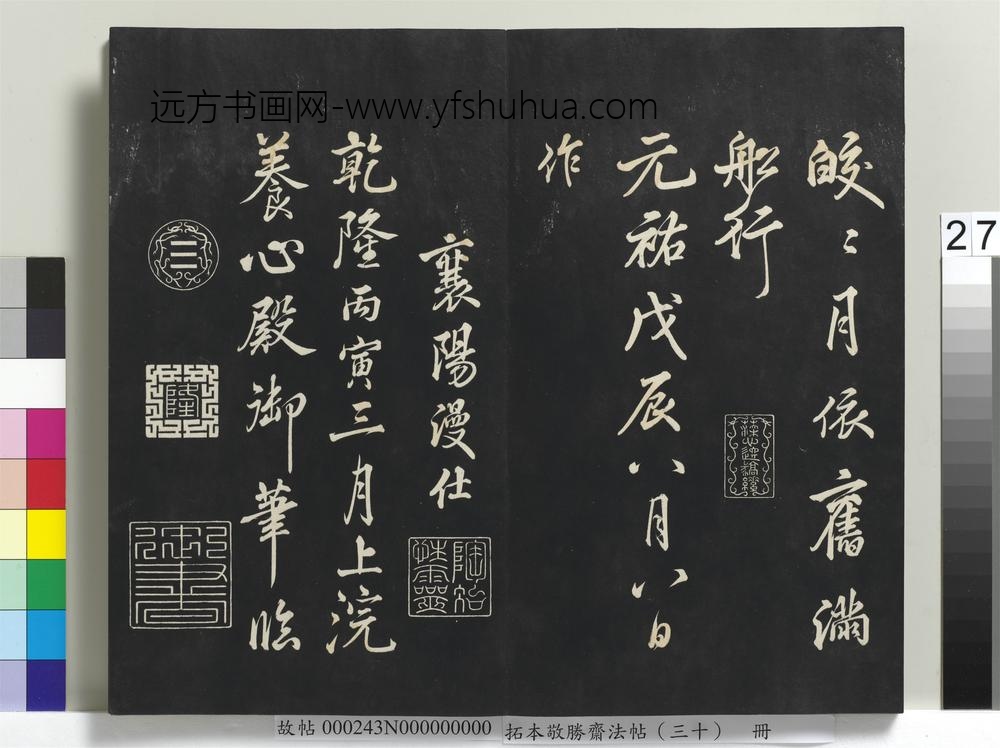 远方书画网-www.yfshuhua.com
皎〻月依舊滿
船行
元祐戊辰八月八日
作
襄陽漫仕
乾隆丙寅三月上浣
養心殿御筆臨
三
隆
陶冶
性靈
27
故帖 000243N000000000
拓本敬勝齋法帖（三十） 冊